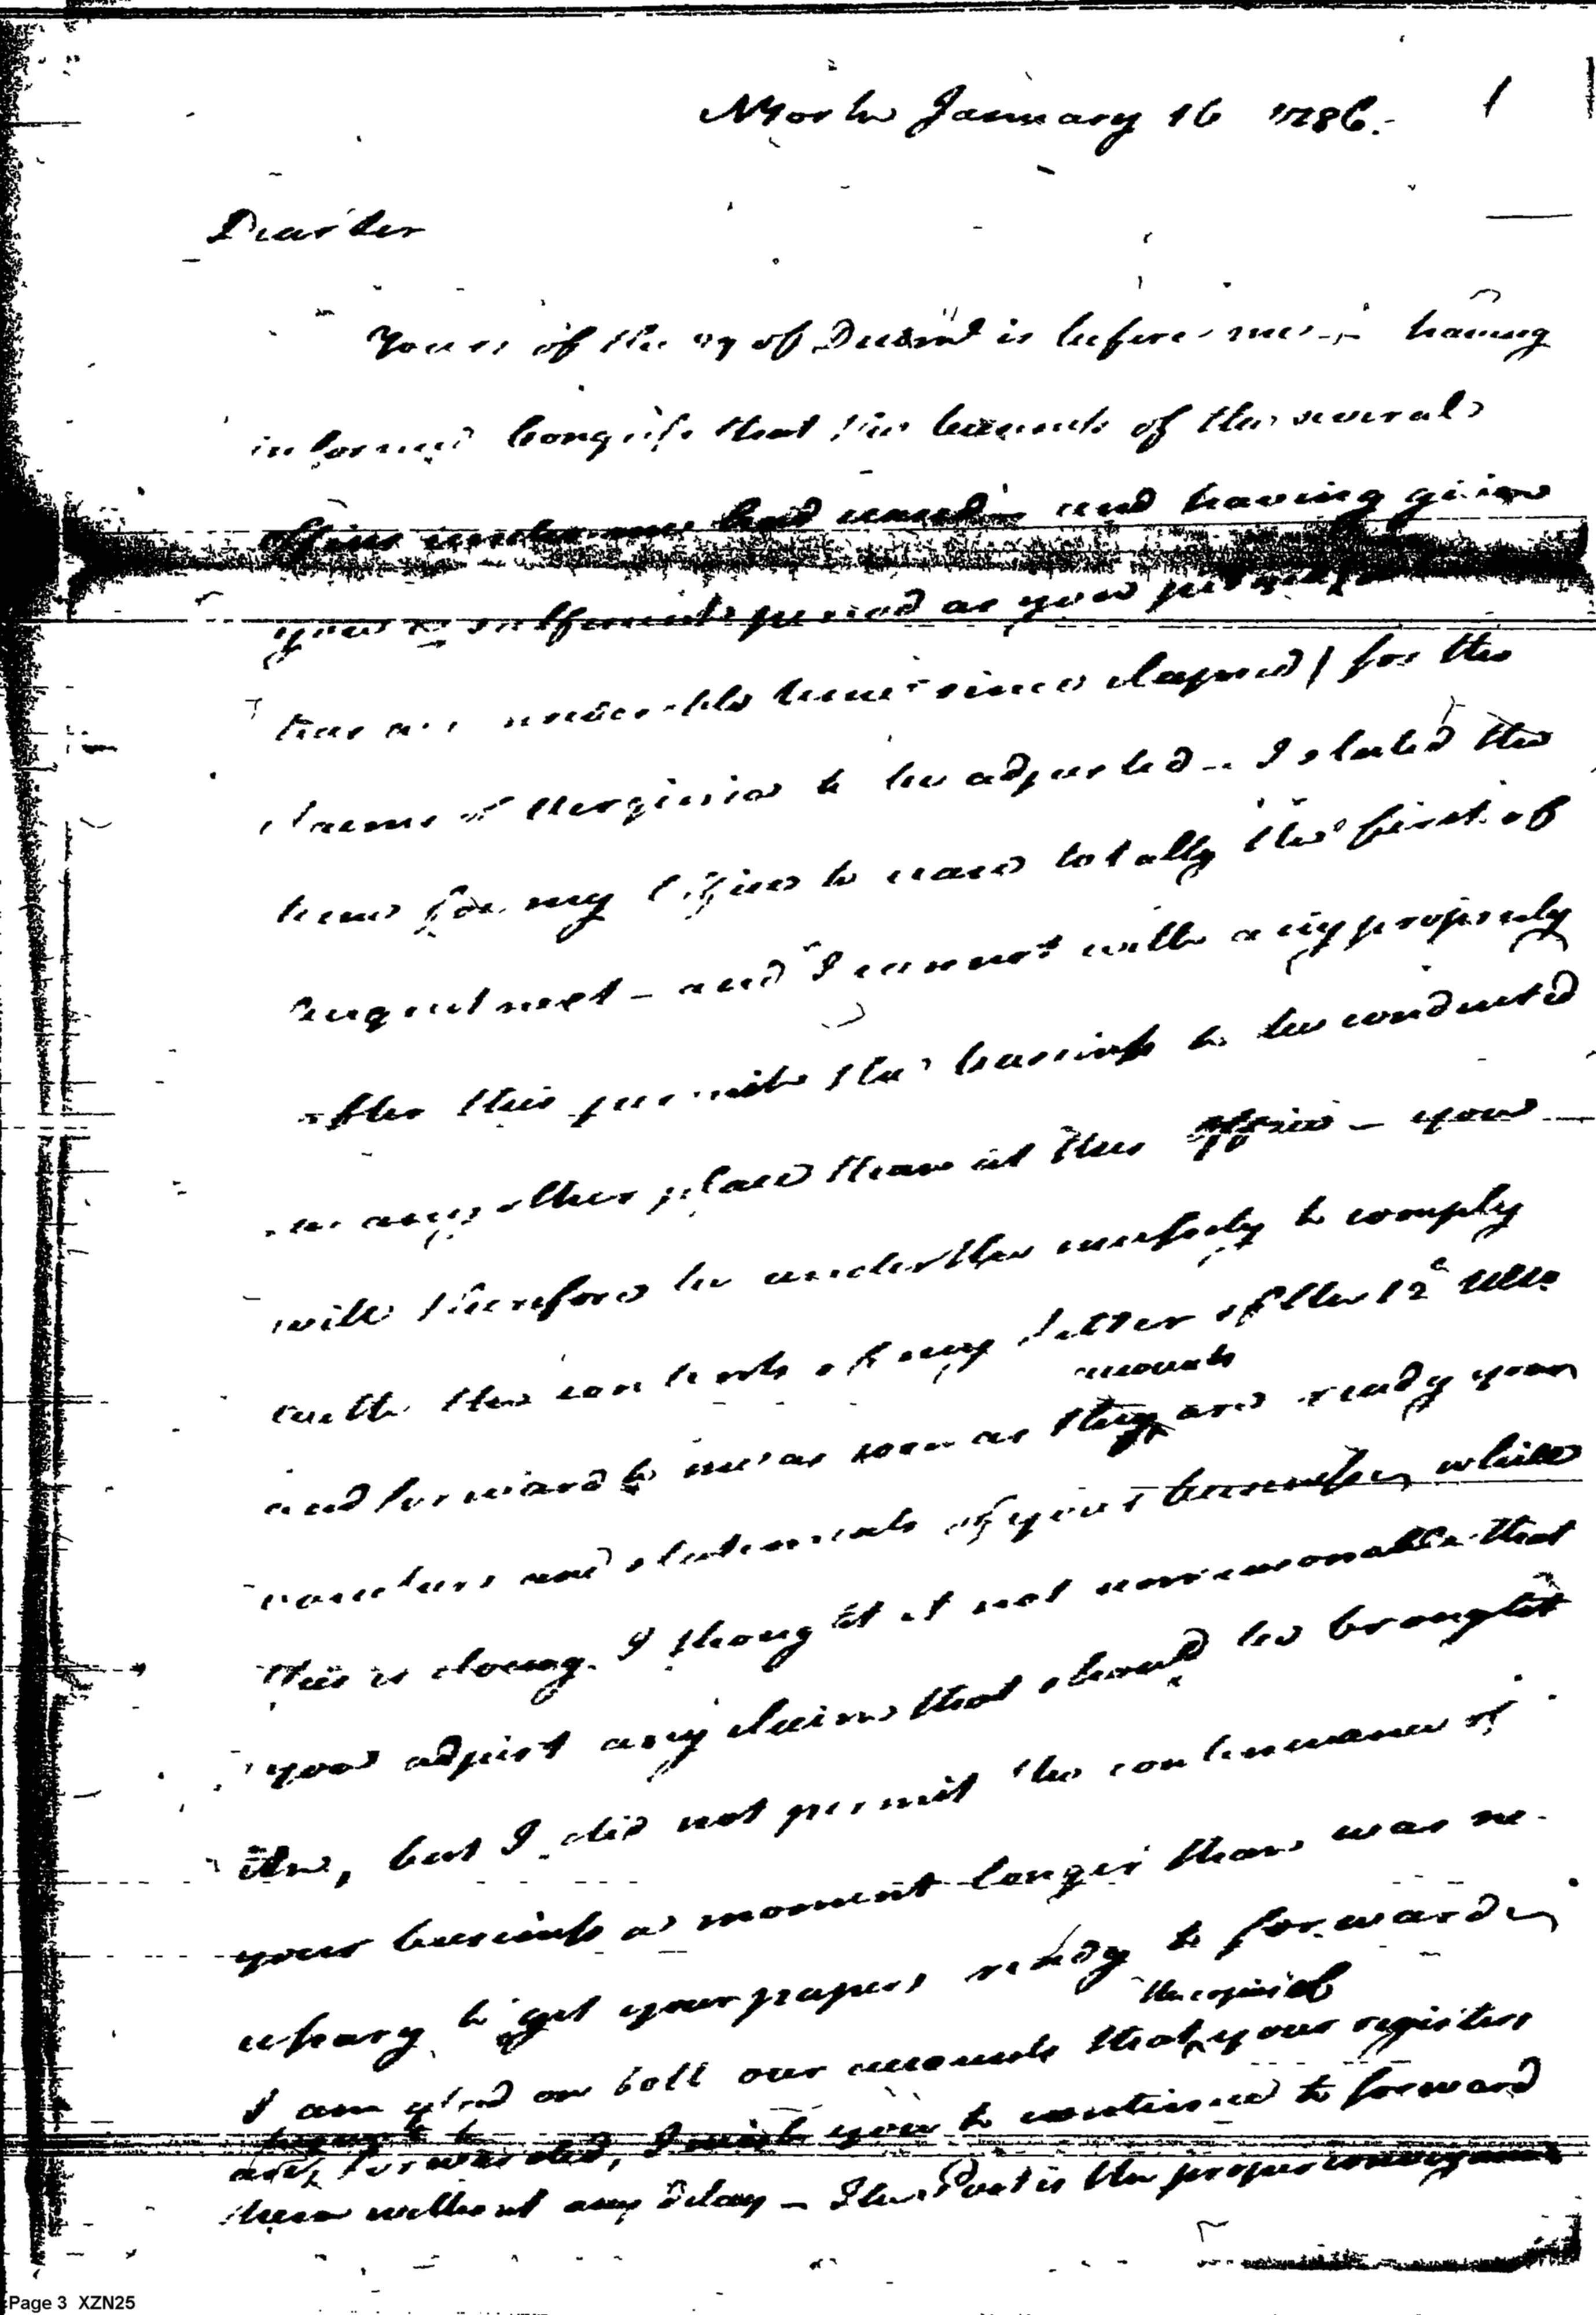 NYork January 16 1786.
1
Dear Sir
Yours of the 29 of Decemr is before me - having
informed Congress that the business of the several
offices under me had ceased - and having given
you a sufficient period as you
has a considerable time since elapsed) for the
claims of Virginia to be adjusted - I stated the
time for my Office to cease totally the first of
August next - and I cannot with any propriety
after this permit the business to be conducted
in any other place than at this office - you
will therefore be under the necessity to comply
with the contents of my letter of the 12th Ulto
accounts
and forward to me as soon as they are ready your
vouchers and statements of your business, while
this is doing. I thought it not unreasonable that
you adjust any claims that should be brought
in, but I did not permit the continuance of
your business a moment longer than was ne-
cessary to get your papers ready to forward
the copies of
I am glad on both our accounts that your registers
are forwarded, I wish you to continue to forward
them without any delay - The Post is the proper conveyance
Page 3 XZN25